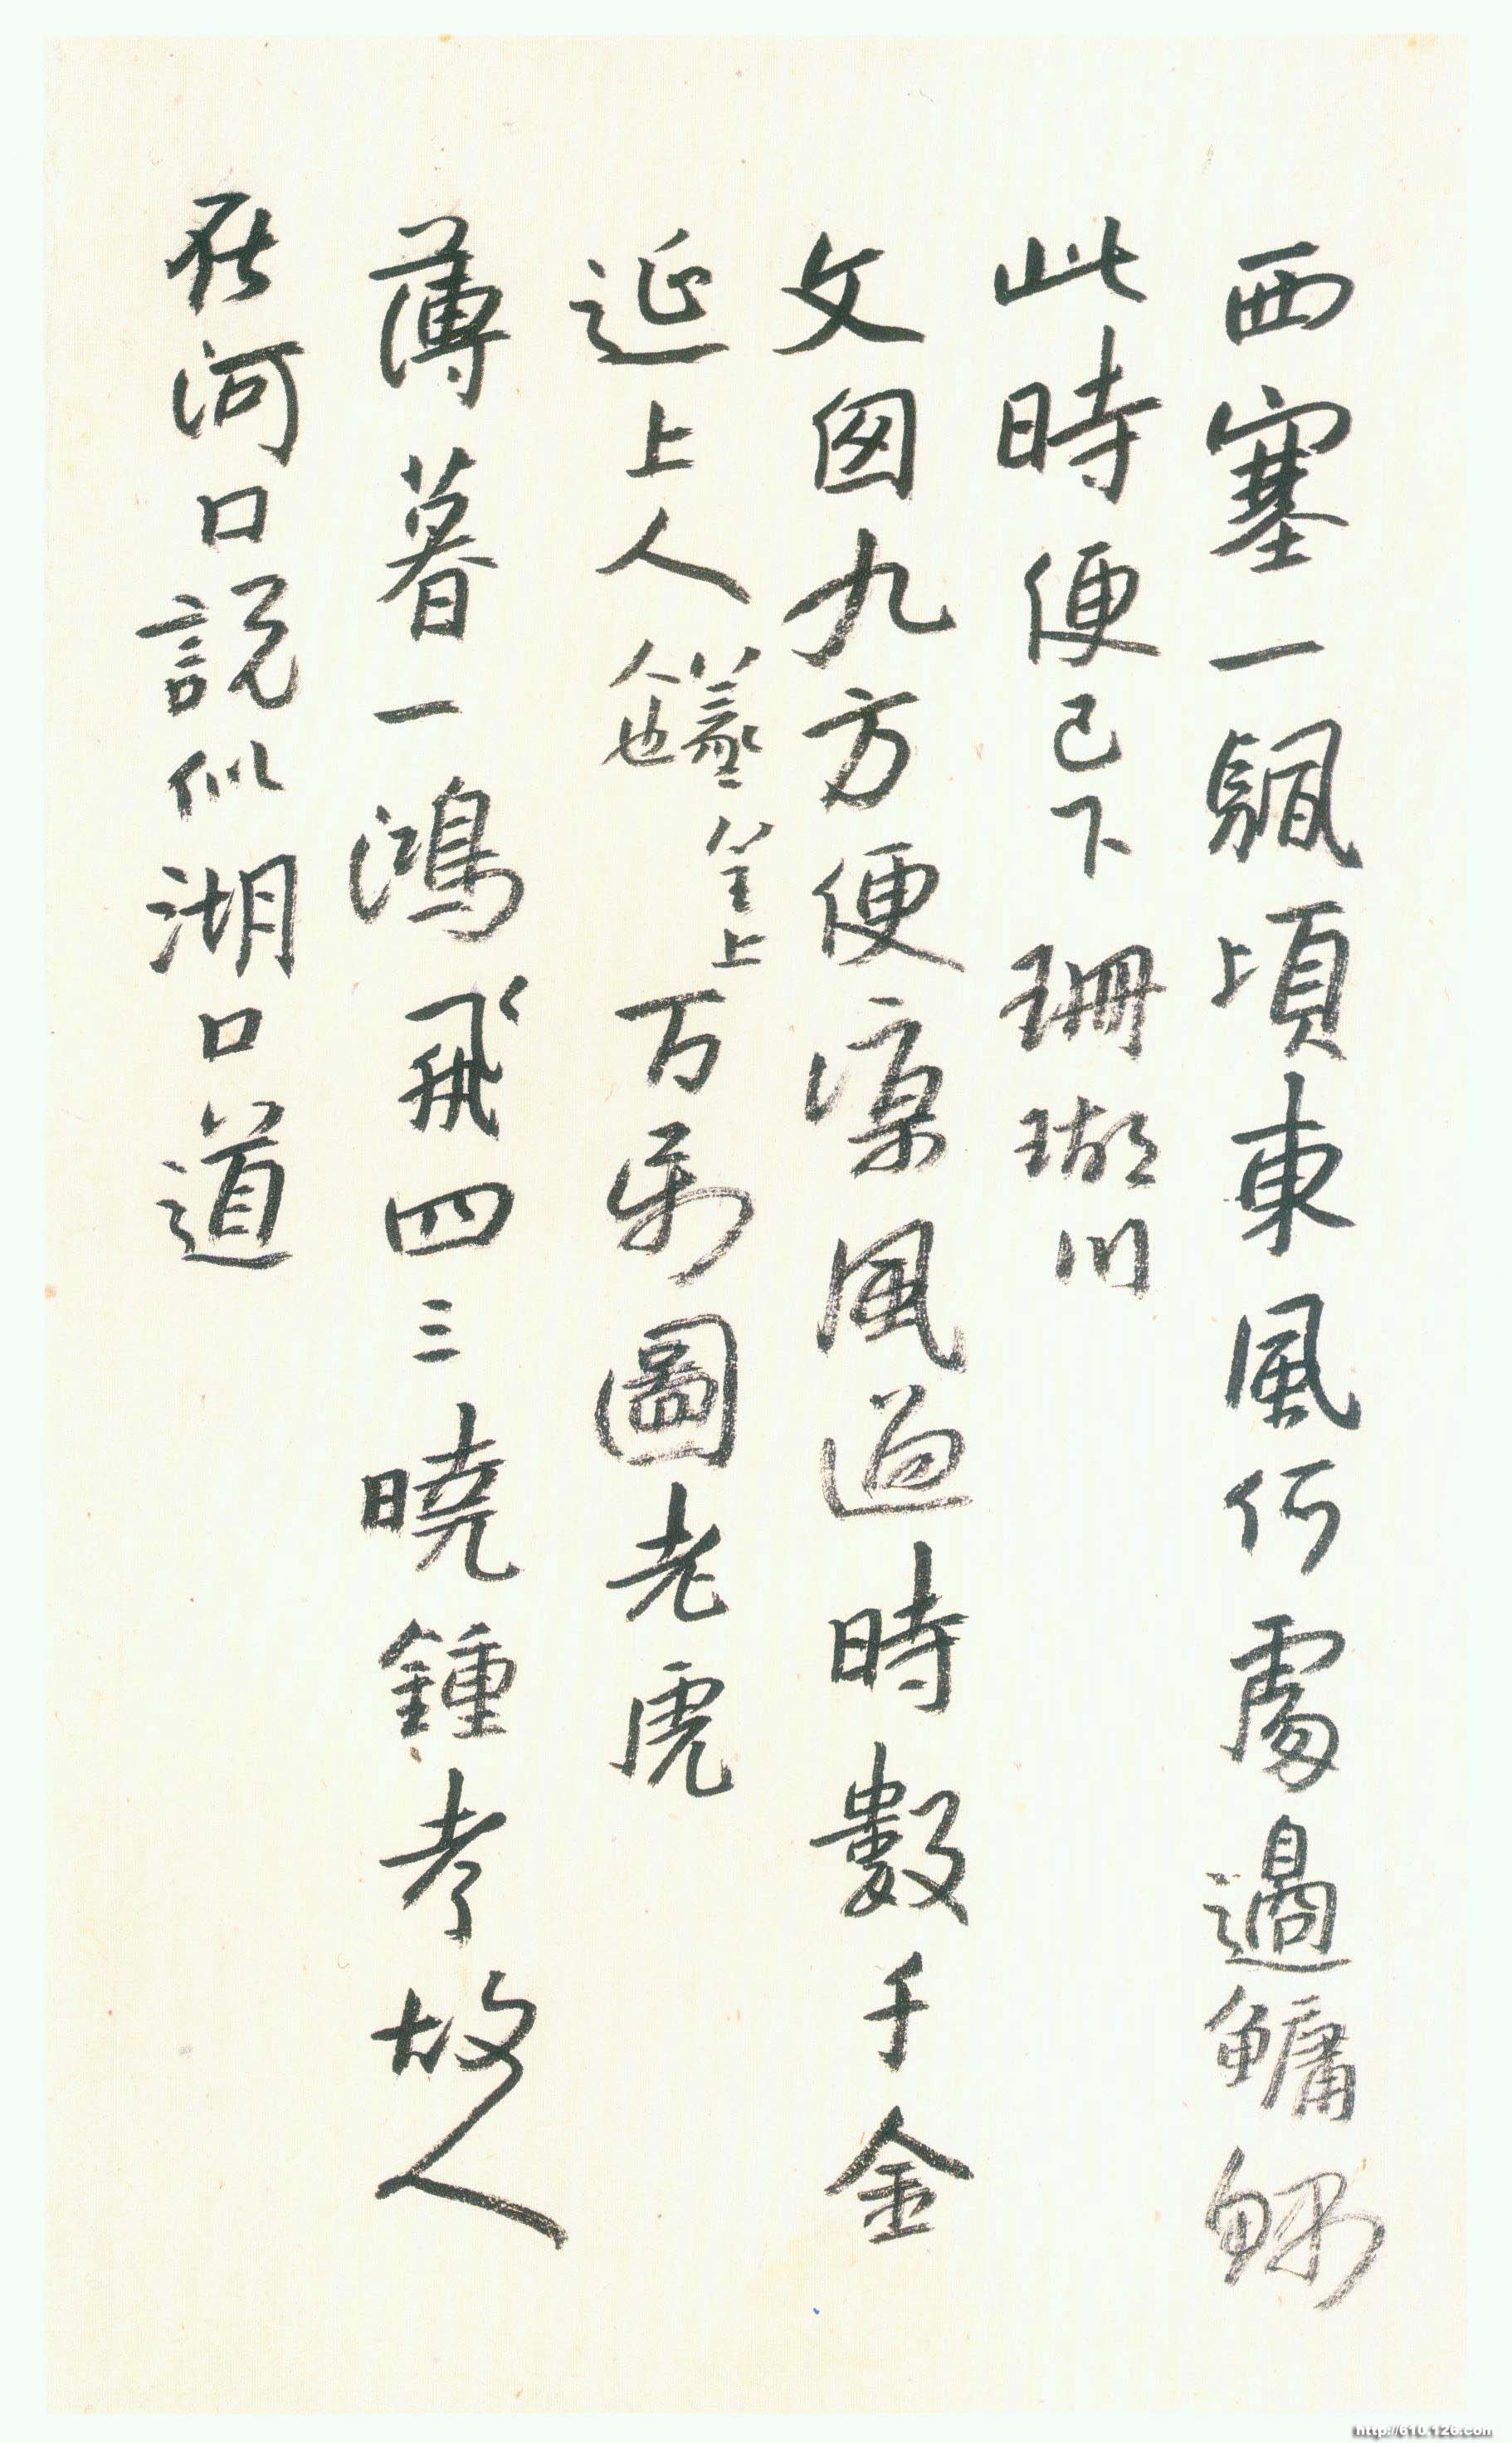 西塞一颿頃東風何處過鱅鯄
此時便已下珊瑚川
文囪九方便涼風過時數千金
延上人
羲皇上
人也
百萬圖老虎
薄暮一鴻飛四三曉鍾孝故人
在河口說似湖口道
http://610.126.com